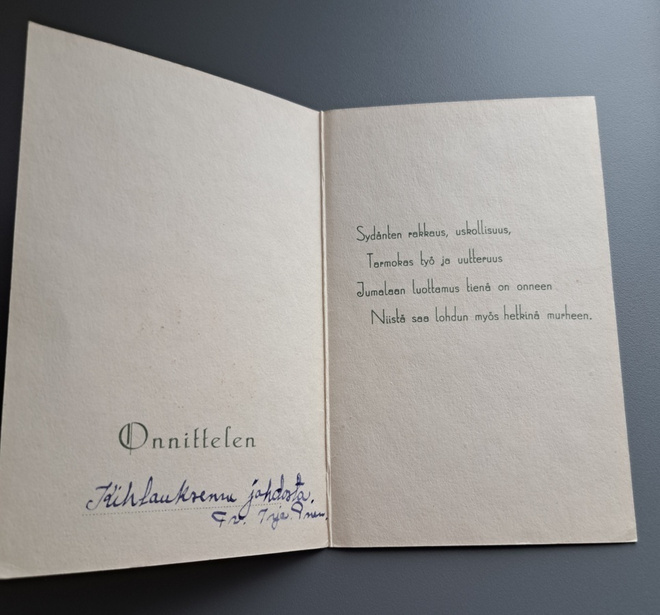 Onnittelen
Kihlauksenne johdosta.
Irja
Sydänten rakkaus, uskollisuus,
Tarmokas työ ja uutteruus
Jumalaan luottamus tienä on onneen
Niistä saa lohdun myös hetkinä murheen.